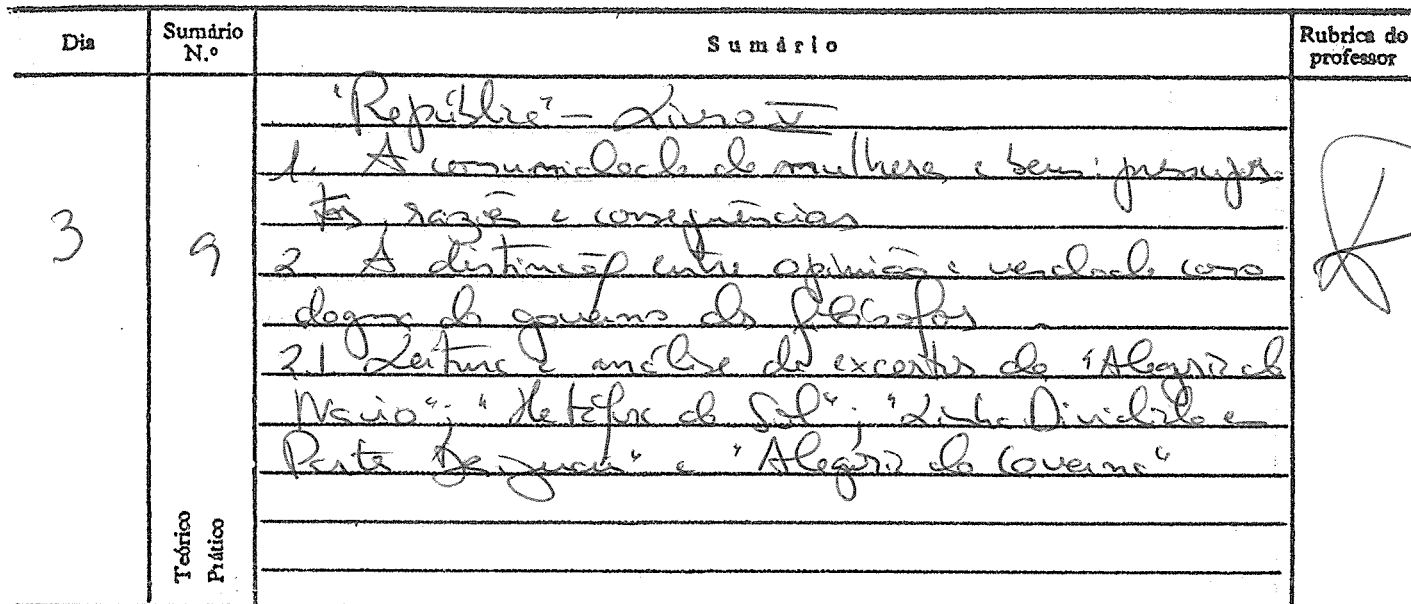 Dia
Sumário N.º
Sumário
Rubrica do professor
3
9
"República" – Livro V
1. A comunidade de mulheres e bens: pressupos-
tos, razões e consequências
2 A distinção entre opinião e verdade como
dogma do governo dos filósofos
2.1 Leitura e análise de excertos da "Alegoria do
Navio"; "Metáfora do Sol"; "Linha Dividida em
Partes Desiguais" e "Alegoria da Caverna"
Teórico
Prático